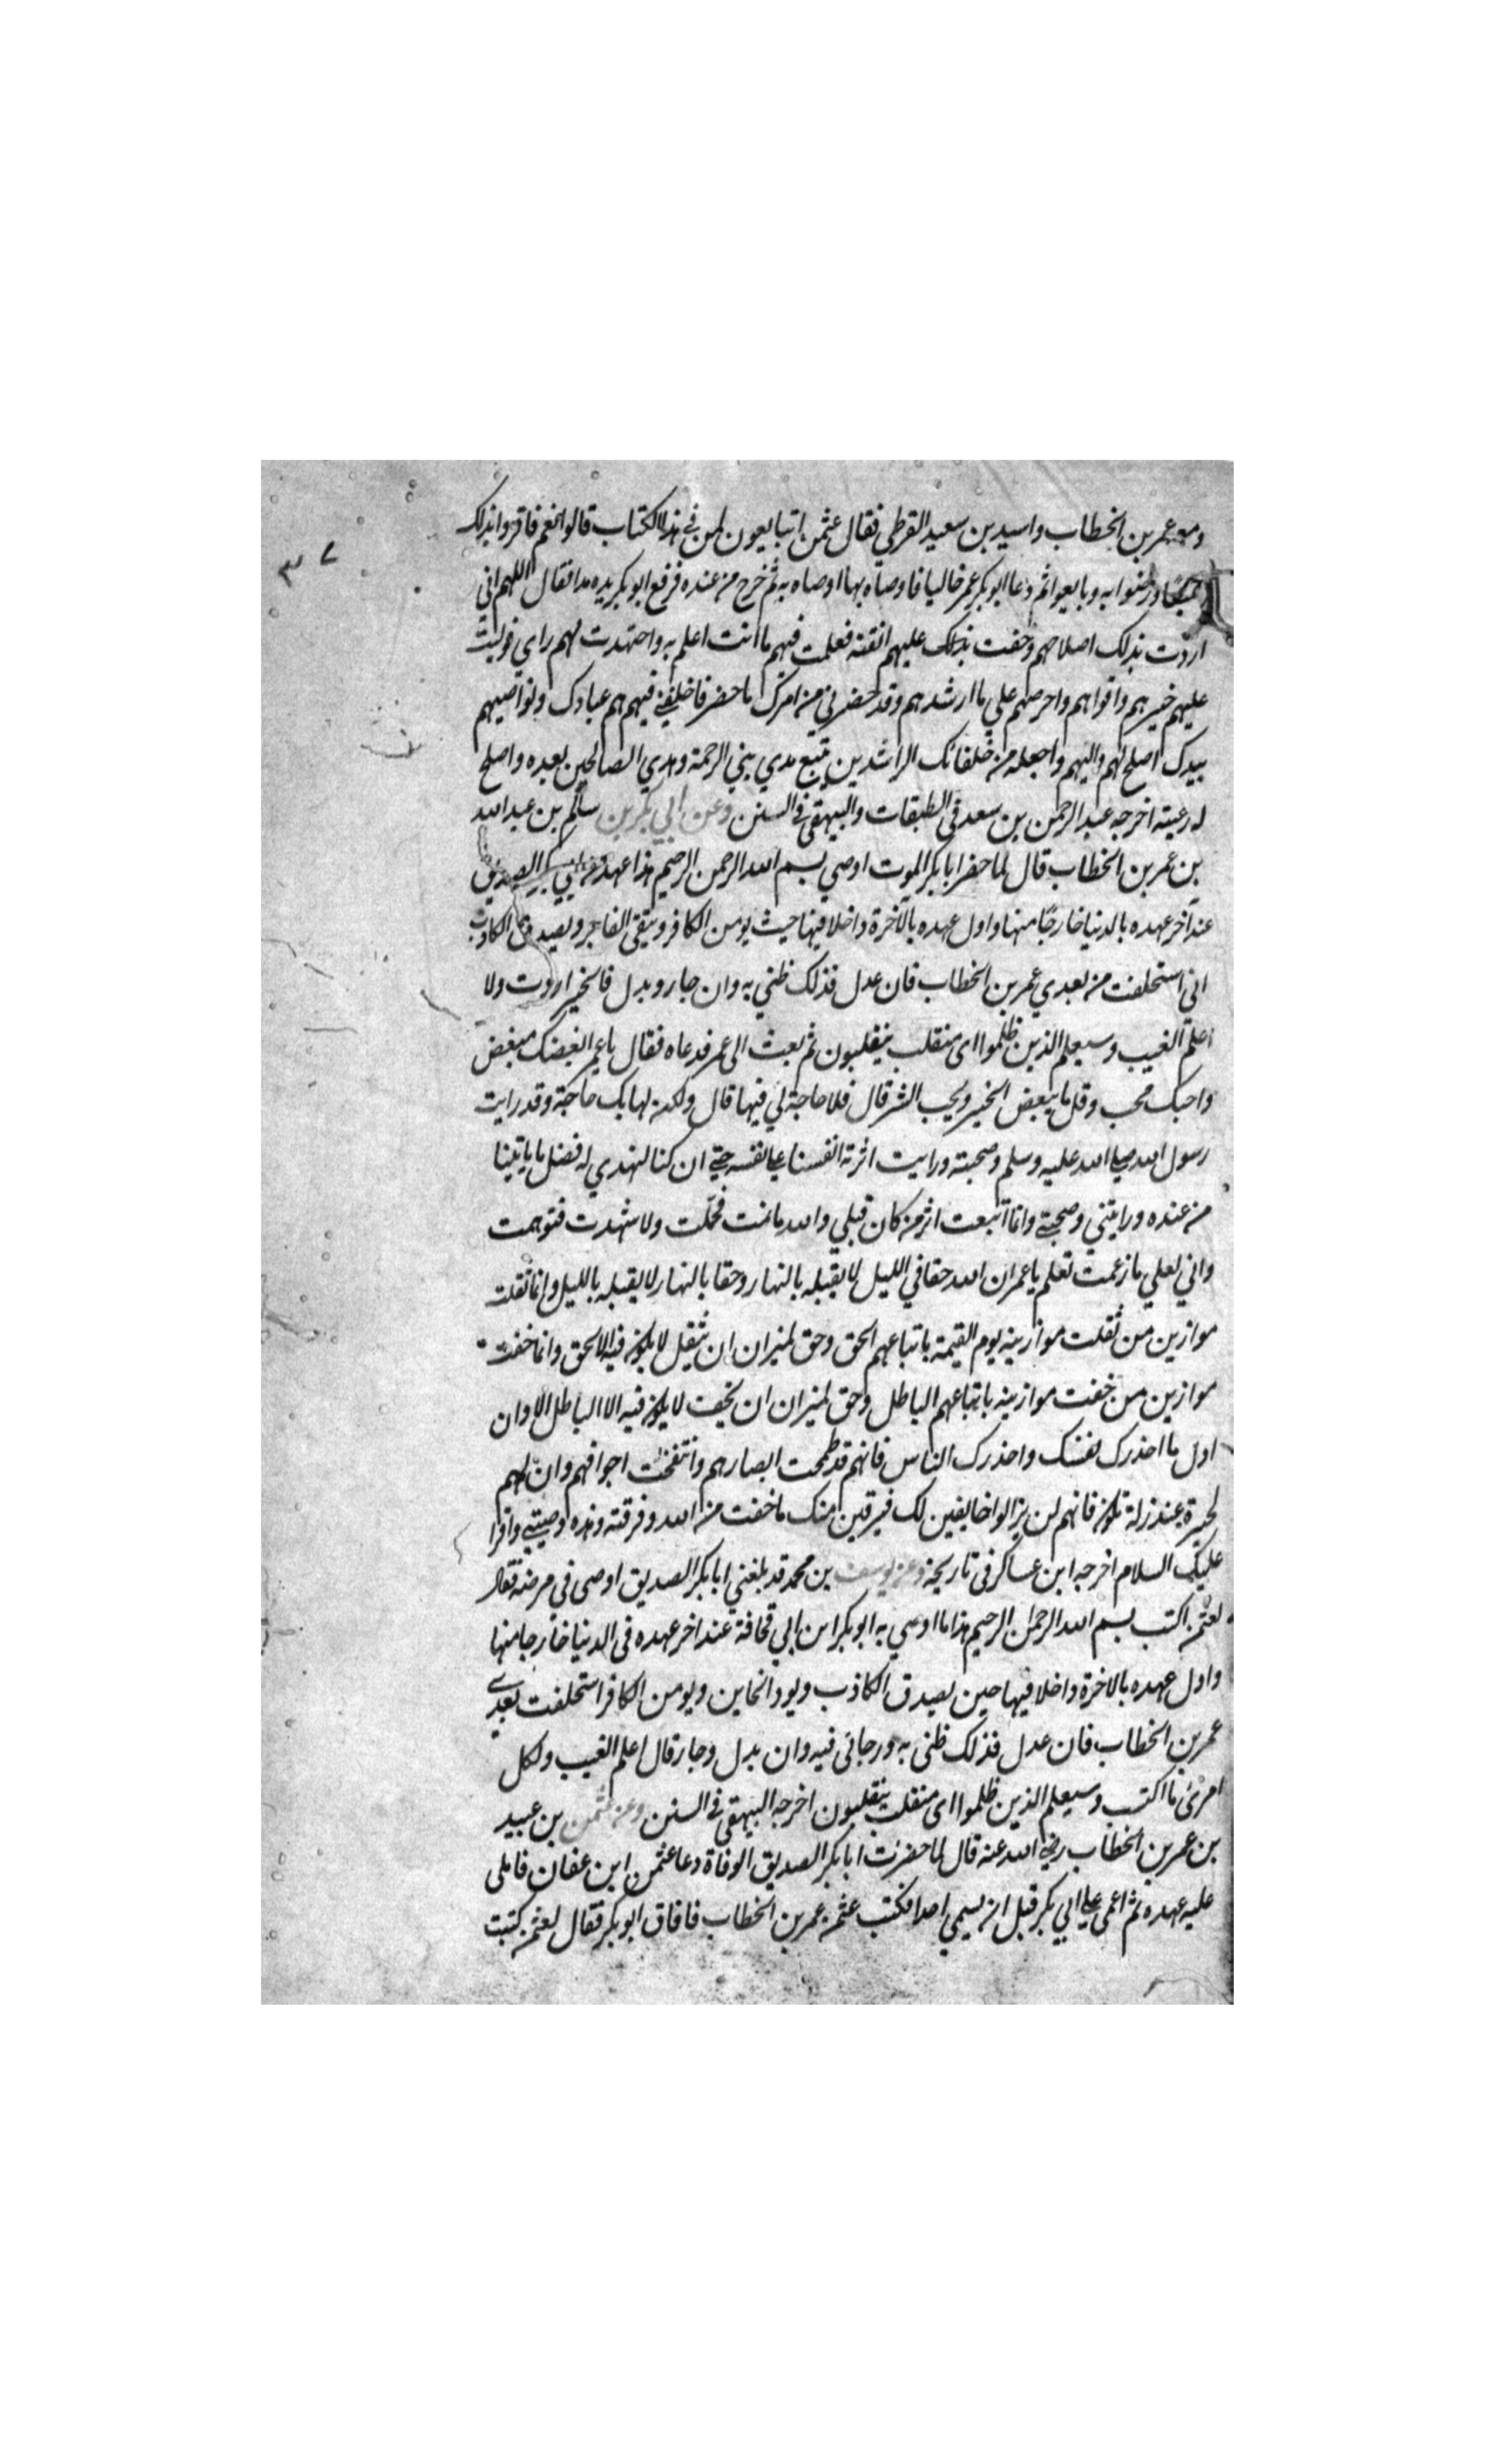 ومعه عمر بن الخطاب واسيد بن سعيد القرظي فقال عثمن اتبايعون لمن في هذا الكتاب قالوا نعم فاقروا بذلك
٣٧
جميعًا ورضوا به وبايعوا ثم دعا ابو بكر عمر خاليا فاوصاه بها اوصاه به ثم خرج من عنده فرفع ابو بكر يديه مدا فقال اللهم اني
اردت بذلك اصلاحهم وخفت بذلك عليهم الفتنه فعلمت فيهم ما انت اعلم به واجتهدت لهم راي فوليت
عليهم خيرهم واقواهم واحرصهم علي ما ارشدهم وقد حضرني من امرك ما حضر فاخلفني فيهم هم عبادك ونواصيهم
بيدك اصلح لهم واليهم واجعله من خلفائك الراشدين يتبع هدي نبي الرحمة وهدي الصالحين بعده واصلح
له رعيته اخرجه عبد الرحمن بن سعد في الطبقات والبيهقي في السنن وعن ابي بكر بن سالم بن عبد الله
بن عمر بن الخطاب قال لما حضر ابا بكر الموت اوصي بسم الله الرحمن الرحيم هذا عهد من ابي بكر الصديق
عند اخر عهده بالدنيا خارجًا منها واول عهده بالآخرة داخلا فيها حيث يومن الكافر ويتقي الفاجر ويصدق الكاذب
اني استخلفت من بعدي عمر بن الخطاب فان عدل فذلك ظني به وان جار وبدل فالخير اردت ولا
اعلم الغيب وسيعلم الذين ظلموا اى منقلب ينقلبون ثم بعث الى عمر فدعاه فقال يا عمر ابغضك مبغض
واحبك محب وقل ما يبغض الخير ويحب الشر قال فلا حاجة لي فيها قال ولكن لها بك حاجة وقد رايت
رسول الله صلى الله عليه وسلم وصحبته ورايت اثرته انفسنا على نفسه حتى ان كنا لنهدي له فضل ما ياتينا
من عنده ورايتني وصحبتي وانما اتبعت اثر من كان قبلي والله ما نمت فحلمت ولا شهدت فتوهمت
واني لعلي ما زعمت تعلم يا عمر ان لله حقا في الليل لا يقبله بالنهار وحقا بالنهار لا يقبله بالليل وانما ثقلت
موازين من ثقلت موازينه يوم القيمة باتباعهم الحق وحق لميزان ان يثقل لا يكون فيه الا الحق وانما خفت
موازين من خفت موازينه باتباعهم الباطل وحق لميزان ان يخف لا يكون فيه الا الباطل الا وان
اول ما احذرك نفسك واحذرك الناس فانهم قد طمحت ابصارهم وانتفخت اجوافهم وان لهم
لحيرة عند زلة تكون فانهم لن يزالوا خايفين لك فرقين منك ما خفت من الله وفرقته وهذه وصيتي واقرا
عليك السلام اخرجه ابن عساكر في تاريخه وعن يوسف بن محمد قد بلغني ابا بكر الصديق اوصى في مرضه فقال
لعثمن اكتب بسم الله الرحمن الرحيم هذا ما اوصي به ابو بكر ابن ابي قحافة عند اخر عهده في الدنيا خارجا منها
واول عهده بالاخرة داخلا فيها حين يصدق الكاذب ويود الخاين ويومن الكافر استخلفت بعدي
عمر بن الخطاب فان عدل فذلك ظني به ورجائي فيه وان بدل وجار قال اعلم الغيب ولكل
امرئ ما اكتسب وسيعلم الذين ظلموا اى منقلب ينقلبون اخرجه البيهقي في السنن وعن عثمن بن عبيد
بن عمر بن الخطاب رضي الله عنه قال لما حضرت ابا بكر الصديق الوفاة دعا عثمن ابن عفان فاملى
عليه عهده ثم اغمى على ابي بكر قبل ان يسمي احدا فكتب عثمن عمر بن الخطاب فافاق ابو بكر فقال لعثمن كتبت